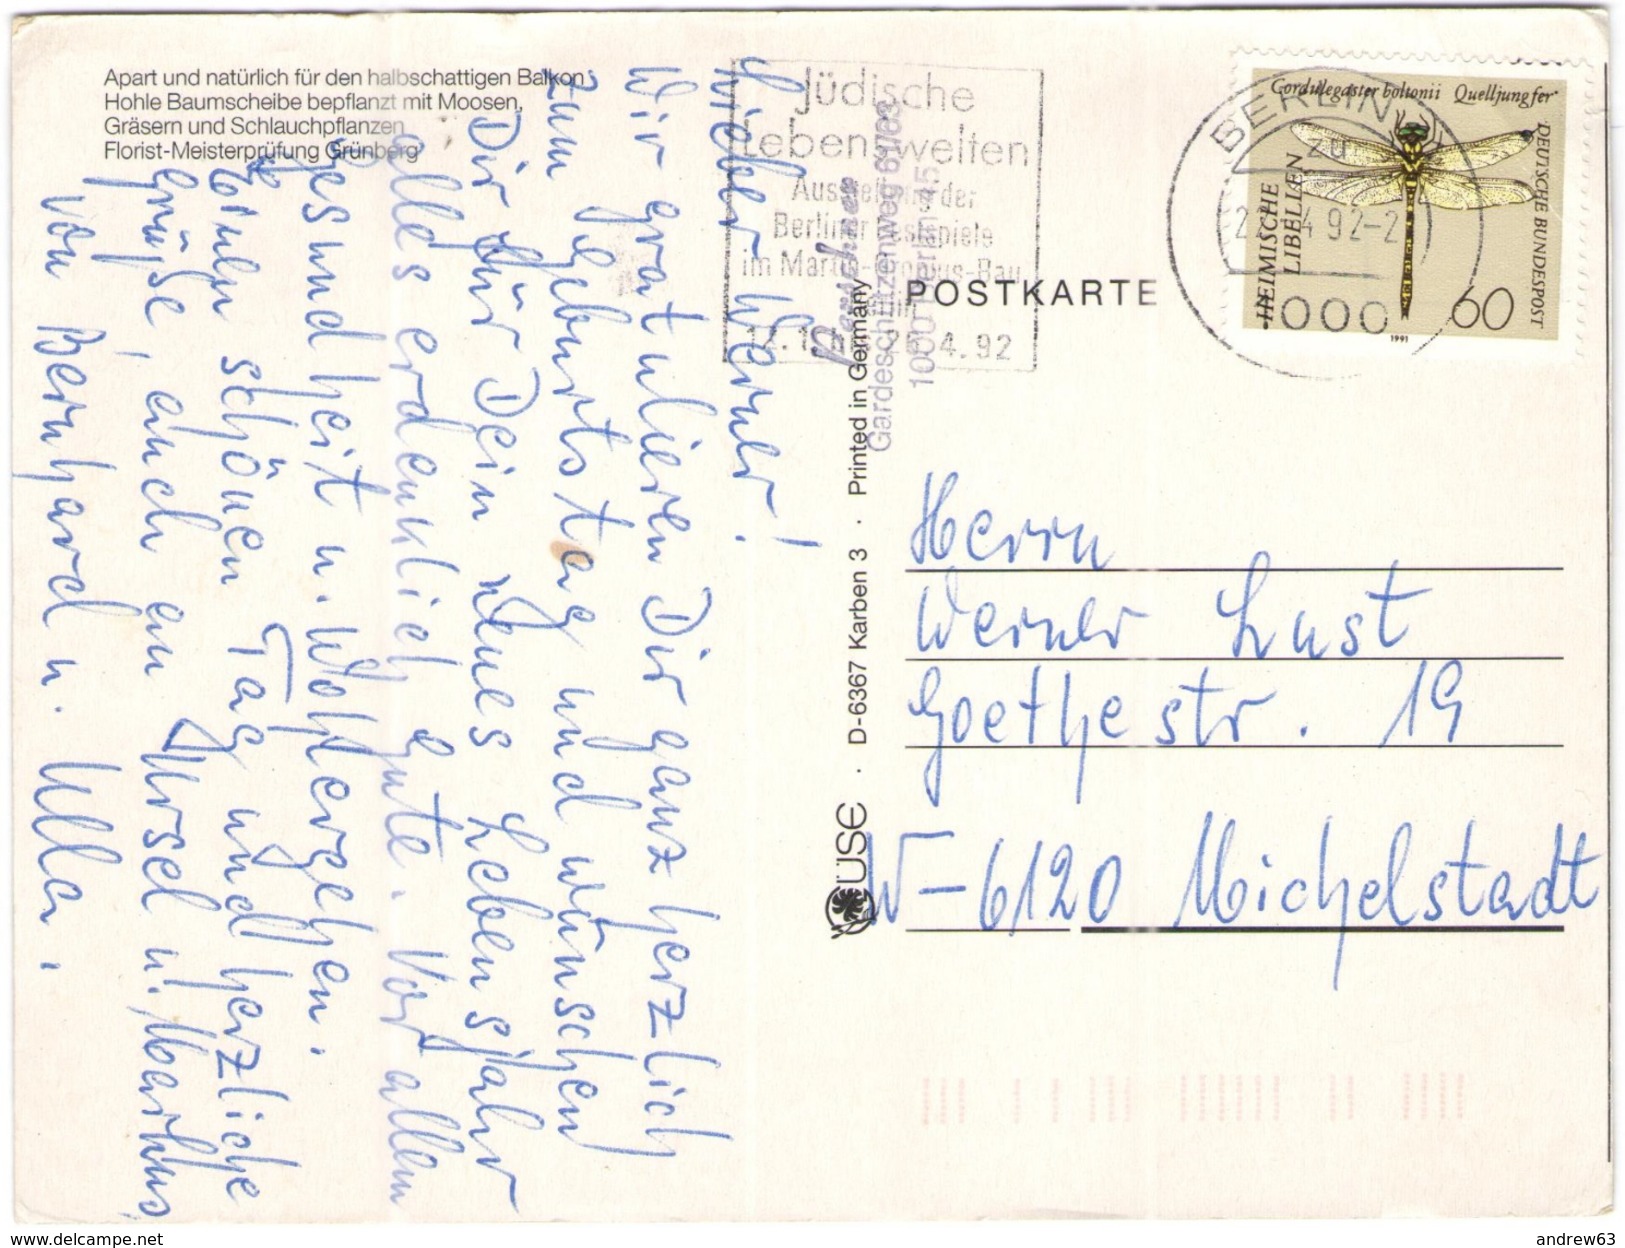 Apart und natürlich für den halbschattigen Balkon:
Hohle Baumscheibe bepflanzt mit Moosen,
Gräsern und Schlauchpflanzen
Florist-Meisterprüfung Grünberg
Lieber Werner!
Wir gratulieren Dir ganz herzlich
zum Geburtstag und wünschen
Dir für Dein neues Lebensjahr
alles erdenklich gute. Vor allem
Gesundheit u. Wohlergehen.
schönen Tag und herzliche
Grüße, auch an Ursel u. Markus,
von Bernhard u. Ulla.
Jüdische
Lebenswelten
Ausstellung der
Berliner Festspiele
im Martin-Gropius-Bau
Berlin
12.1. bis 26.4.92
Gardeschützenweg
1000 Berlin 45
POSTKARTE
BERLIN
4 92-2
1000
Cordulegaster boltonii Quelljungfer
HEIMISCHE
LIBELLEN
DEUTSCHE BUNDESPOST
60
1991
ÜSE · D-6367 Karben 3 · Printed in Germany
Herrn
Werner Lust
Goethestr. 19
W-6120 Michelstadt
delcampe.net
andrew63